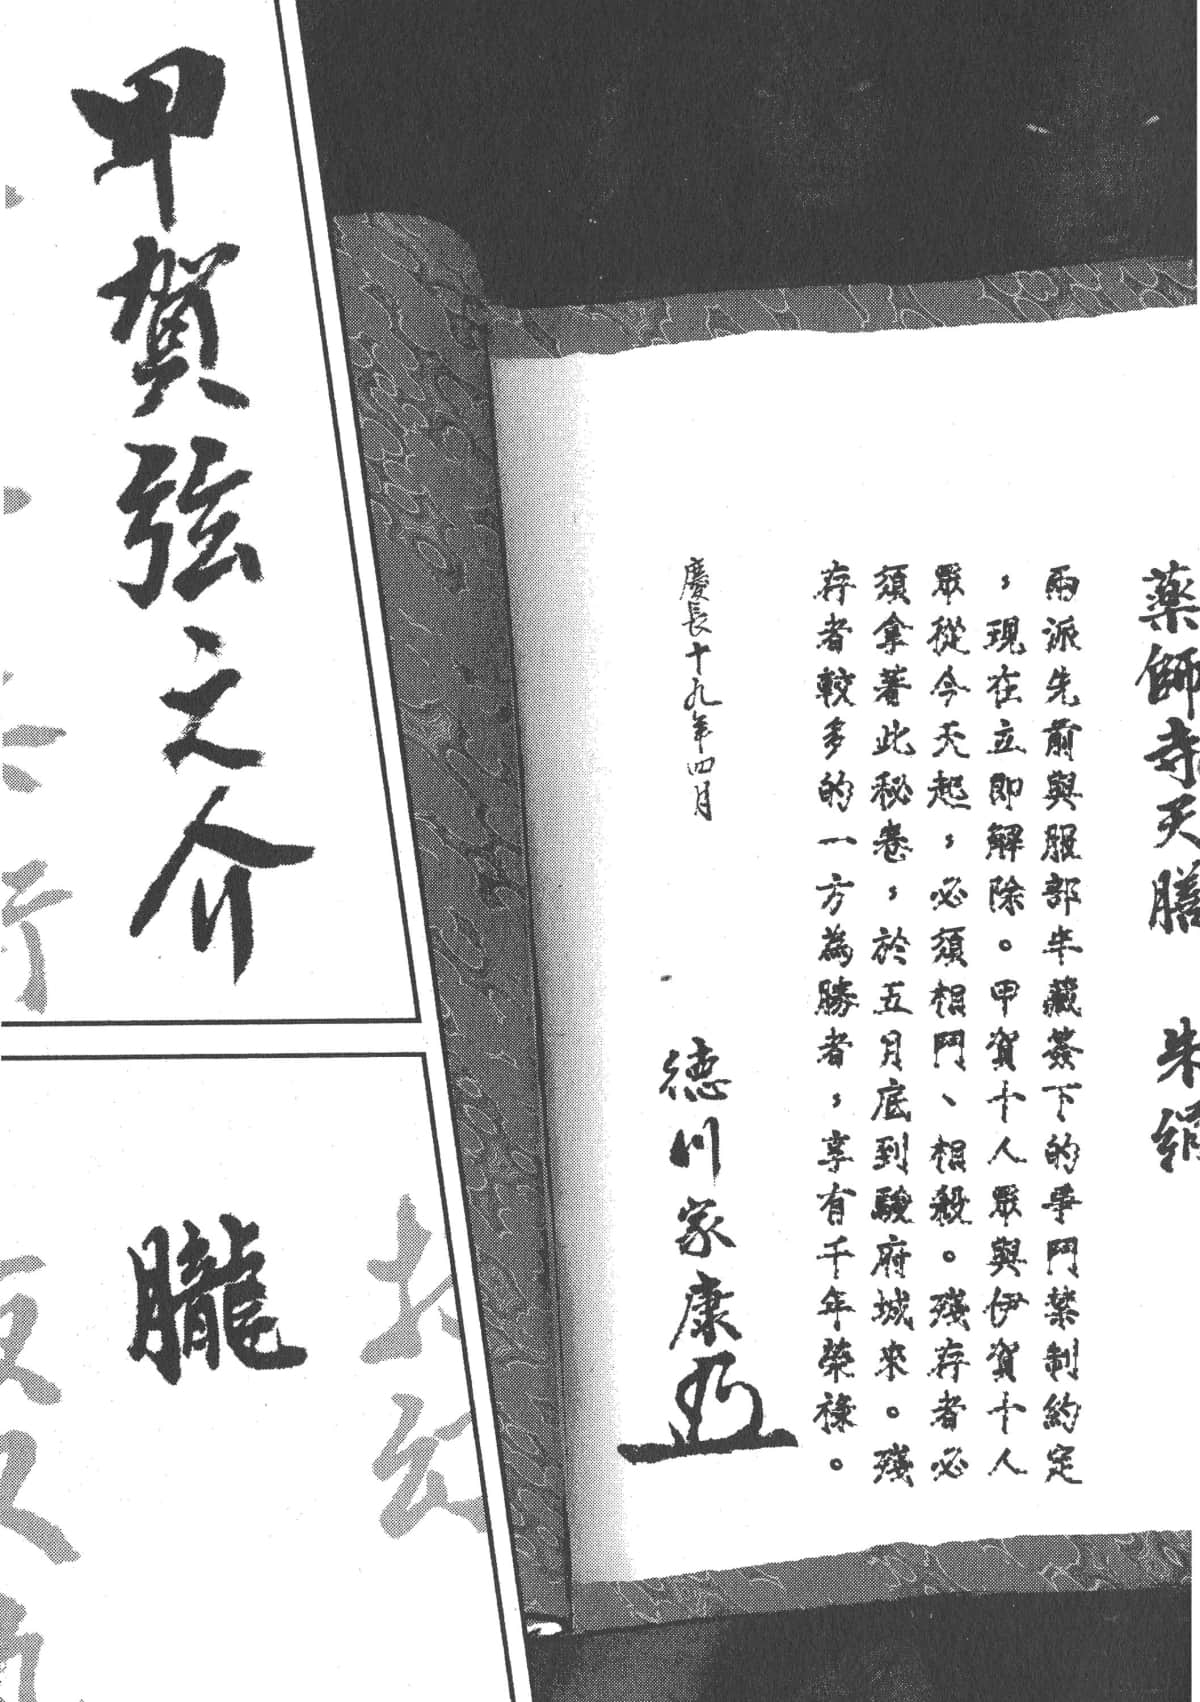 薬師寺天膳　朱絹
兩派先前與服部半藏簽下的爭鬥禁制約定
，現在立即解除。甲賀十人眾與伊賀十人
眾從今天起，必須相鬥、相殺。殘存者必
須拿著此秘卷，於五月底到駿府城來。殘
存者較多的一方為勝者，享有千年榮祿。
慶長十九年四月
德川家康
甲賀弦之介
朧